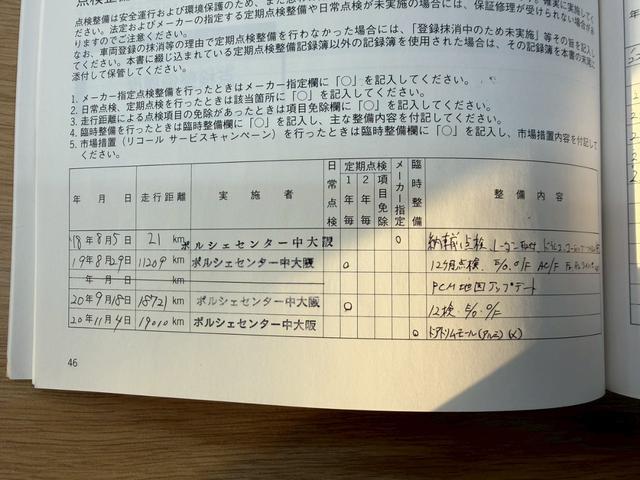 点検整備
点検整備は安全運行および環境保護のため、また
確実に実施して
ださい。法定およびメーカーの指定する定期点検整備や日常点検が未実施の場合には、保証修理が受けられない場合があ
りますのでご注意ください。
なお、車両登録の抹消等の理由で定期点検整備を行わなかった場合には、「登録抹消中のため未実施」等その旨を記入し
てください。本書に綴じ込まれている定期点検整備記録簿以外の記録簿を使用された場合は、その記録簿を本書の末尾に
添付して保管してください。
1. メーカー指定点検整備を行ったときはメーカー指定欄に「○」を記入してください。
2. 日常点検、定期点検を行ったときは該当箇所に「○」を記入してください。
3. 走行距離による点検項目の免除があったときは項目免除欄に「○」を記入してください。
4. 臨時整備を行ったときは臨時整備欄に「○」を記入し、主な整備内容を付記してください。
5. 市場措置（リコール サービスキャンペーン）を行ったときは臨時整備欄に「○」を記入し、市場措置内容を付記して
ください。
年 月 日 走行距離 実施者 日常点検 定期点検 1年毎 2年毎 項目免除 メーカー指定 臨時整備 整備内容
18年8月5日 21 km ポルシェセンター中大阪 ○ 納車前点検、
19年8月29日 11209 km ポルシェセンター中大阪 ○ 12ヶ月点検、E/O、O/F A/C/F
年 月 日 km PCM地図アップデート
20年9月18日 18721 km ポルシェセンター中大阪 ○ 12検、E/O、O/F
20年11月4日 19010 km ポルシェセンター中大阪 ○ ドアトリムモール(アルミ)(×)
46